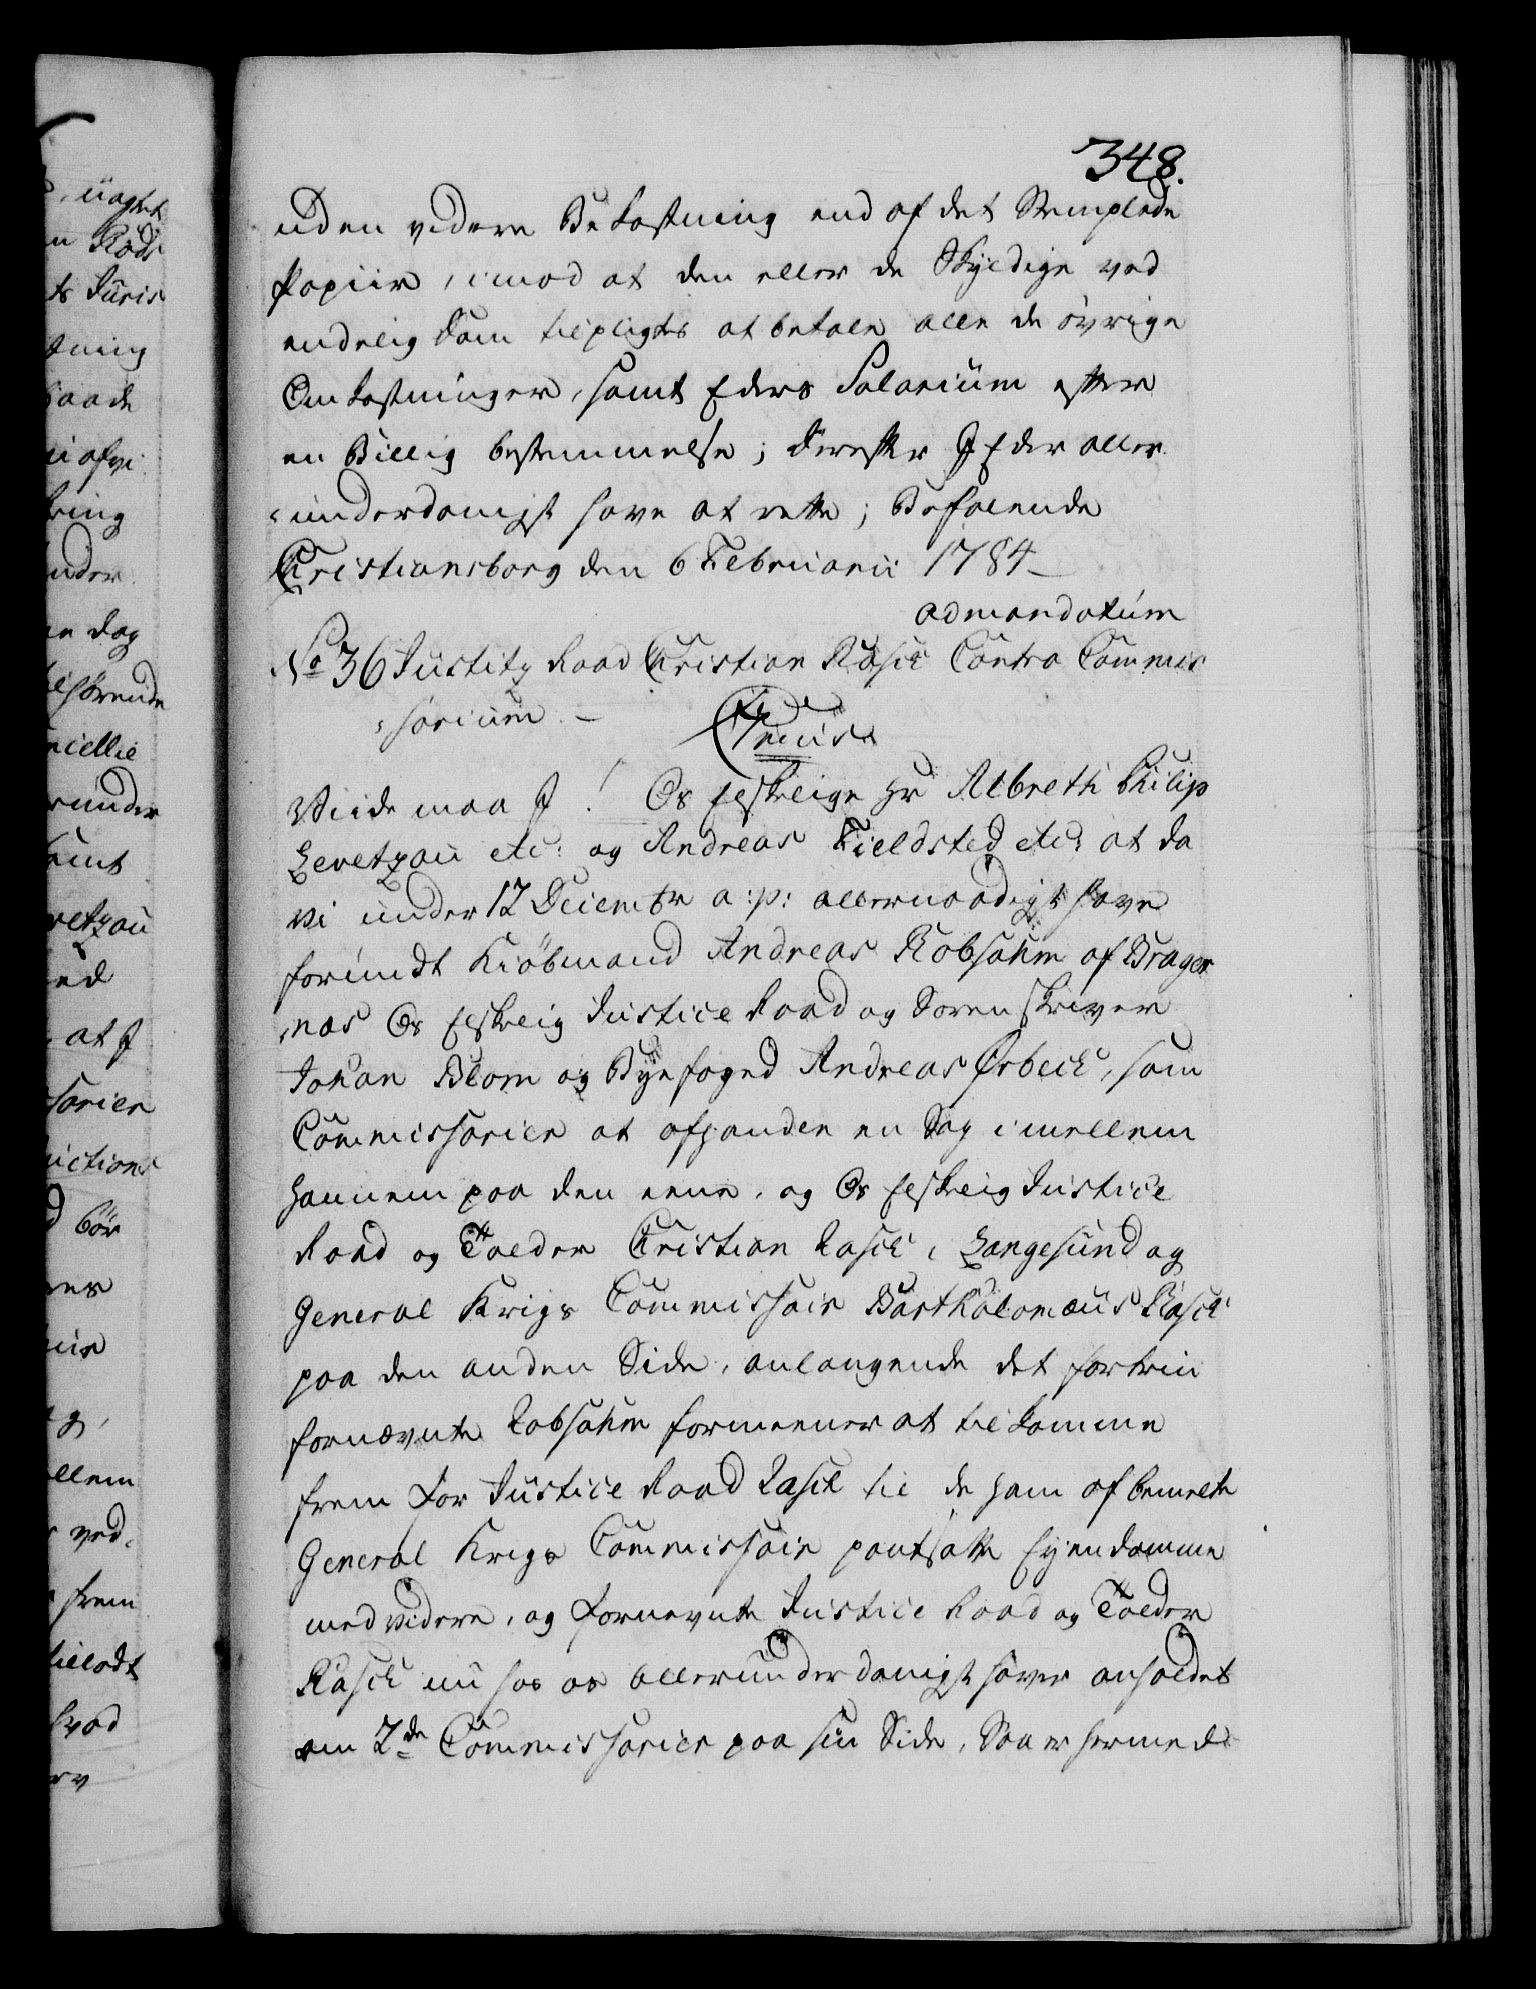 348.
uden videre Bekostning end af det Stemplede
Papiir, imod at den eller de Skyldige ved
endelig Dom tilpligtes at betale alle de øvrige
Omkostninger, samt Eders Salarium efter
en Billig bestemmelse; derefter I Eder aller
underdanigst have at rette; Befalende
Christiansborg den 6 Februarii 1784
ad mandatum
No 36 Justitz Raad Christian Rasch Contra Commis
sorium.
Viide maa I! Os elskelige Hr Albreth Philip
Levetzau etc: og Andreas Fieldsted etc: at da
vi under 12 Decembr a:p: allernaadigst have
forundt Kiöbmand Andreas Robsahm af Brager
næs Os elskelig Justice Raad og Sorenskriver
Johan Blom og Byefoged Andreas Ørbech, som
Commissarier at afhandle en Sag imellem
hannem paa den eene, og Os elskelig Justice
Raad og Tolder Christian Rasch i Langesund og
General Krigs Commissair Bartholomæus Rasch
paa den anden Side, anlangende det fortrin
fornævnte Robsahm formeener at tilkomme
frem for Justice Raad Rasch til de ham af bemelte
General Krigs Commissair pantsatte Eyendomme
med videre, og fornevnte Justice Raad og Tolder
Rasch nu hos os allerunderdanigst haver anholdet
om 2de Commissarier paa sin Side, Saa er hermed